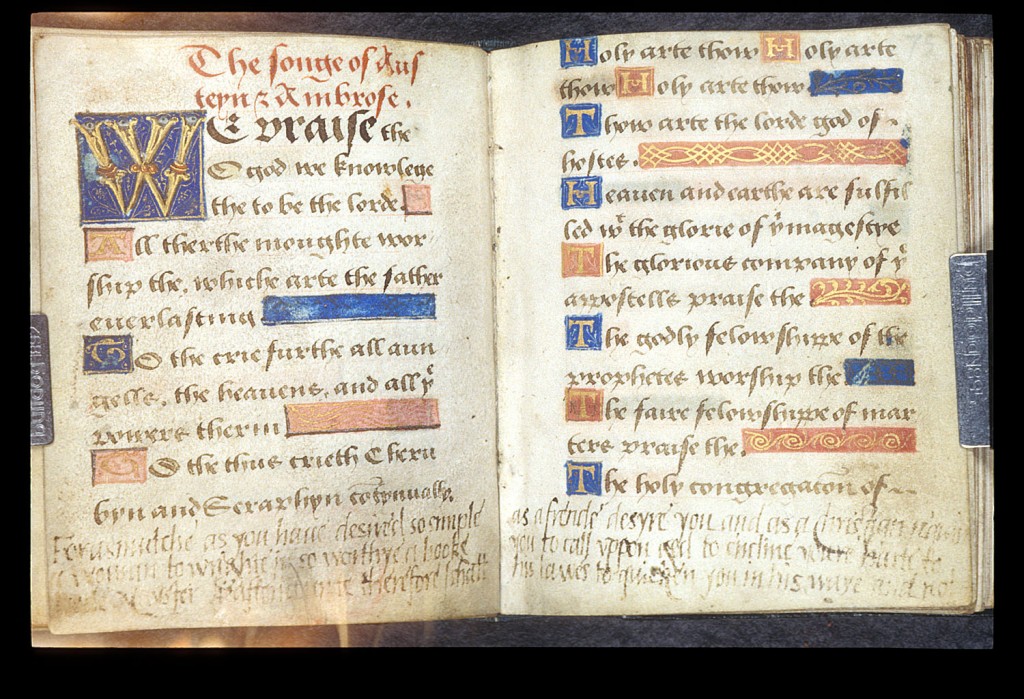 The songe of Aus
teyn & Ambrose.
WE praise the
O god we knowlege
the to be the lorde.
All therthe moughte wor
ship the, whiche arte the father
euerlasting
TO the crie furthe all aun
gells, the heauens, and all yͤ
powers therin
TO the thus crieth Cheru
byn and Seraphyn cōtynually
Forasmutche as you haue desired so simple
a woman to wryghte in so worthye a booke
mayster therefore I shall
Holy arte thow Holy arte
thow Holy arte thow
Thow arte the lorde god of
hostes.
Heauen and earthe are fulfil
led wͭ the glorie of yͥ magestye
The glorious company of yͤ
appostells praise the
The godly felowshippe of the
prophetes worship the
The faire felowshippe of mar
ters praise the.
The holy congregacōn of
as a frende desyre you and as a christian
you to call vppon god to encline youre harte to
his lawes to quicken you in his waye and no